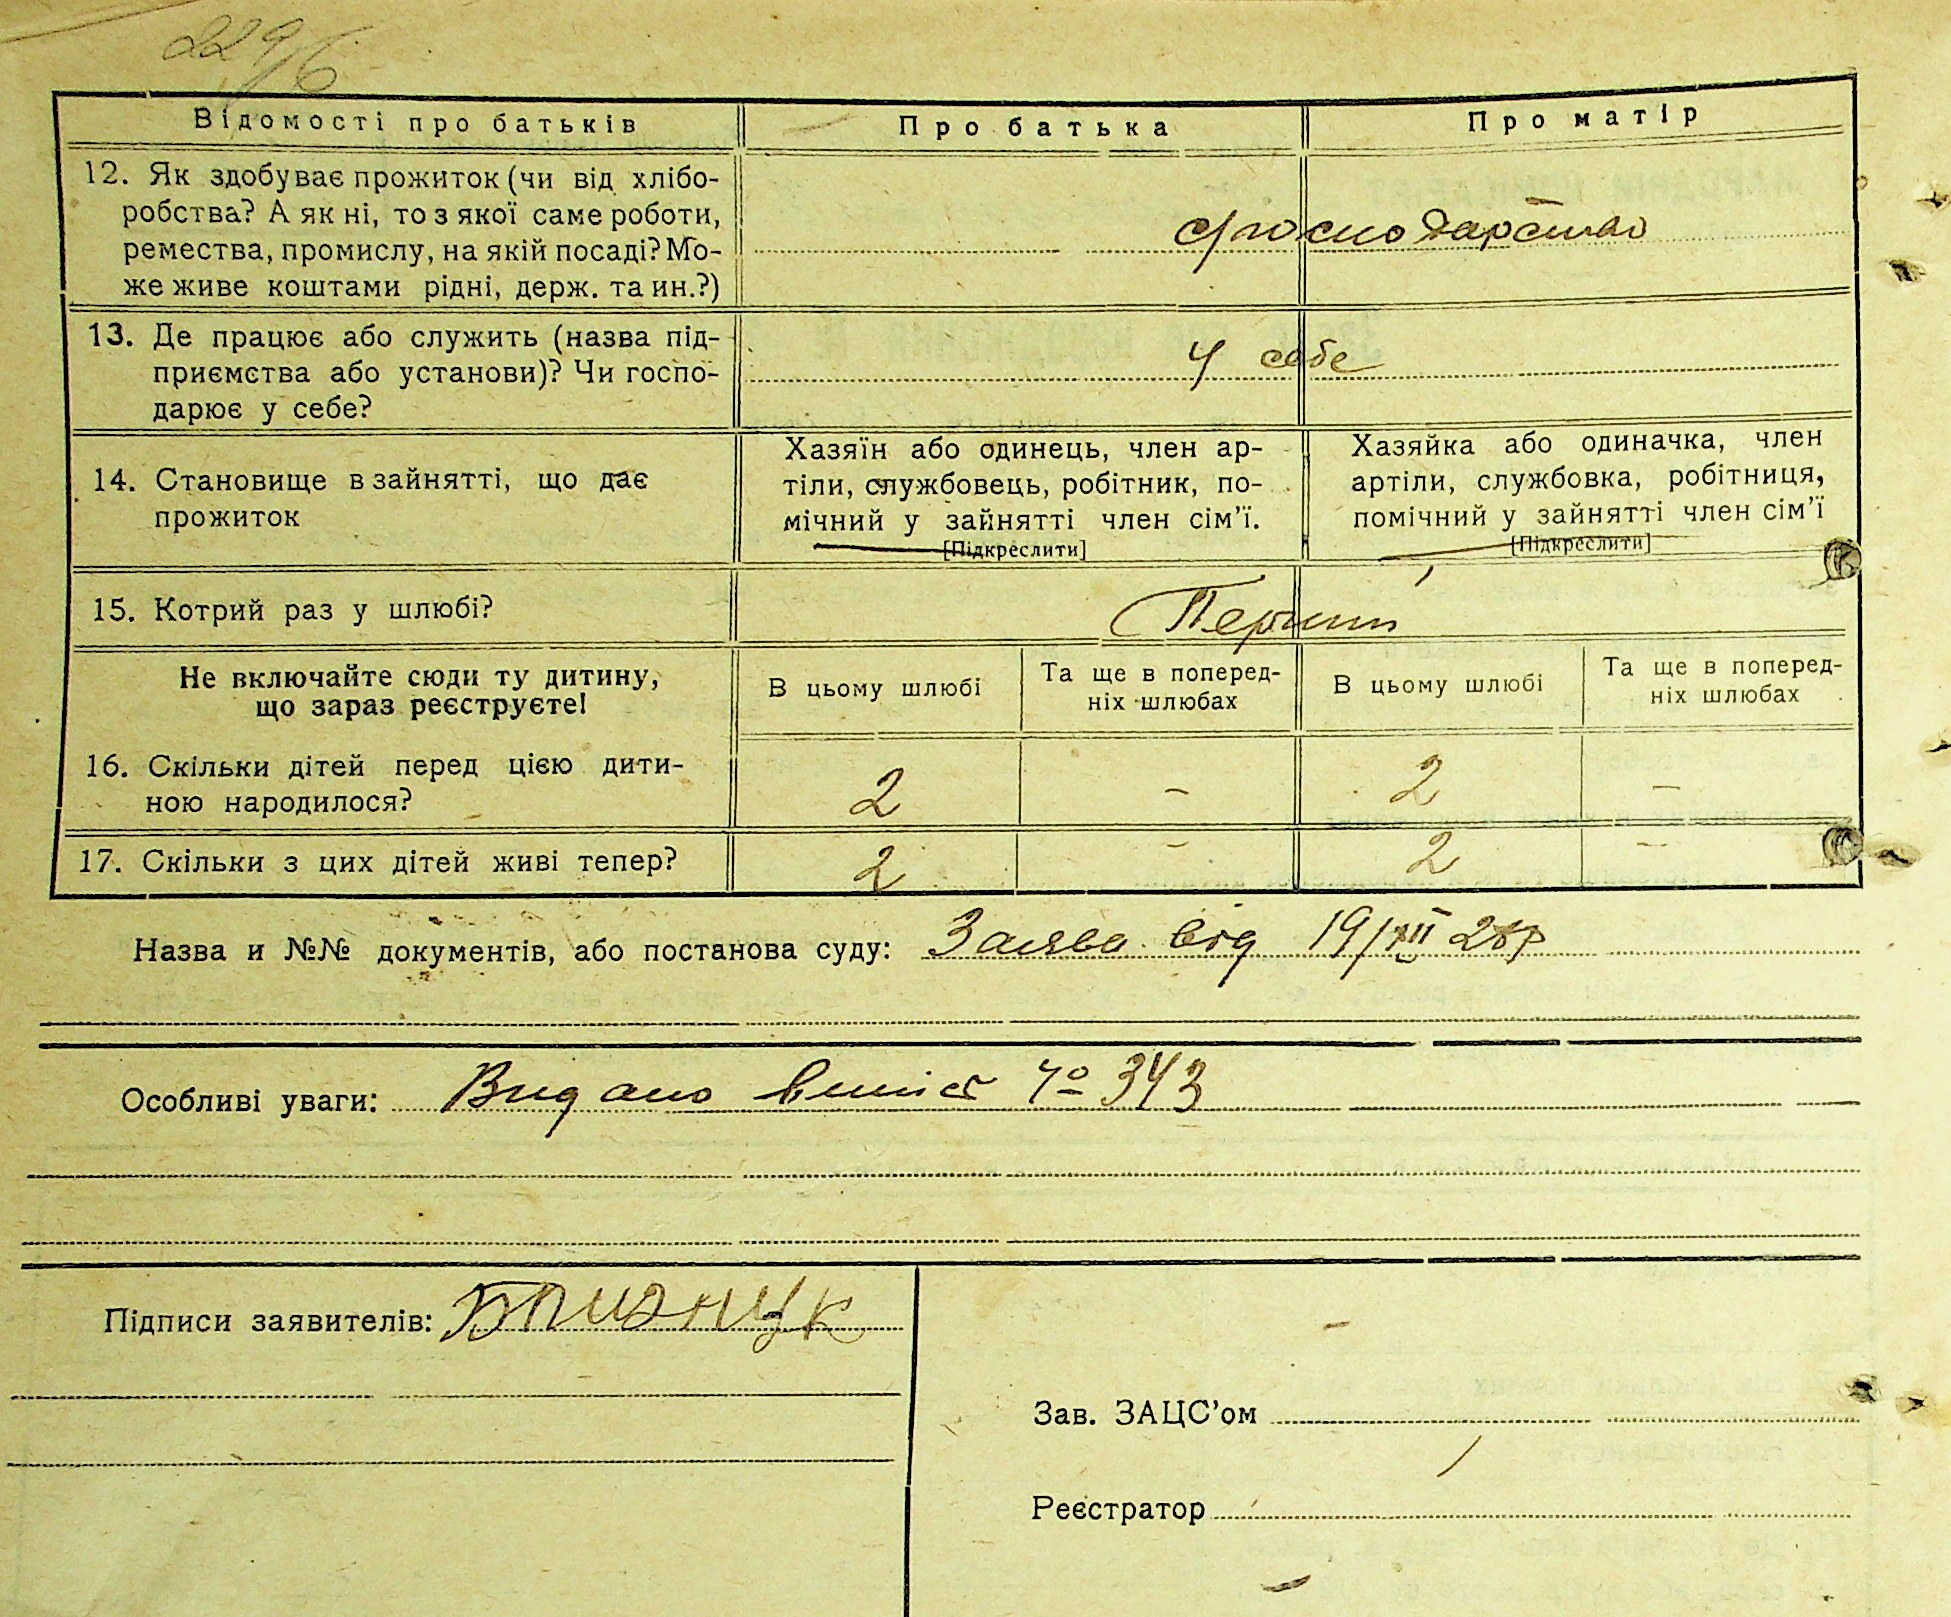 229/6
Відомості про батьків
Про батька
Про матір
12. Як здобуває прожиток (чи від хлібо-
робства? А як ні, то з якої саме роботи,
ремества, промислу, на якій посаді? Мо-
же живе коштами рідні, держ. та ин.?)
с/господарство
13. Де працює або служить (назва під-
приємства або установи)? Чи госпо-
дарює у себе?
У себе
14. Становище в зайнятті, що дає
прожиток
Хазяїн або одинець, член ар-
тіли, службовець, робітник, по-
мічний у зайнятті член сім'ї.
[Підкреслити]
Хазяйка або одиначка, член
артіли, службовка, робітниця,
помічний у зайнятті член сім'ї
[Підкреслити]
15. Котрий раз у шлюбі?
Перший
Не включайте сюди ту дитину,
що зараз реєструєте!
В цьому шлюбі
Та ще в поперед-
ніх шлюбах
В цьому шлюбі
Та ще в поперед-
ніх шлюбах
16. Скільки дітей перед цією дити-
ною народилося?
2 – 2 –
17. Скільки з цих дітей живі тепер?
2 – 2 –
Назва и №№ документів, або постанова суду: Заява від 19/
Особливі уваги: Видано № 343
Підписи заявителів:
Зав. ЗАЦС'ом
Реєстратор